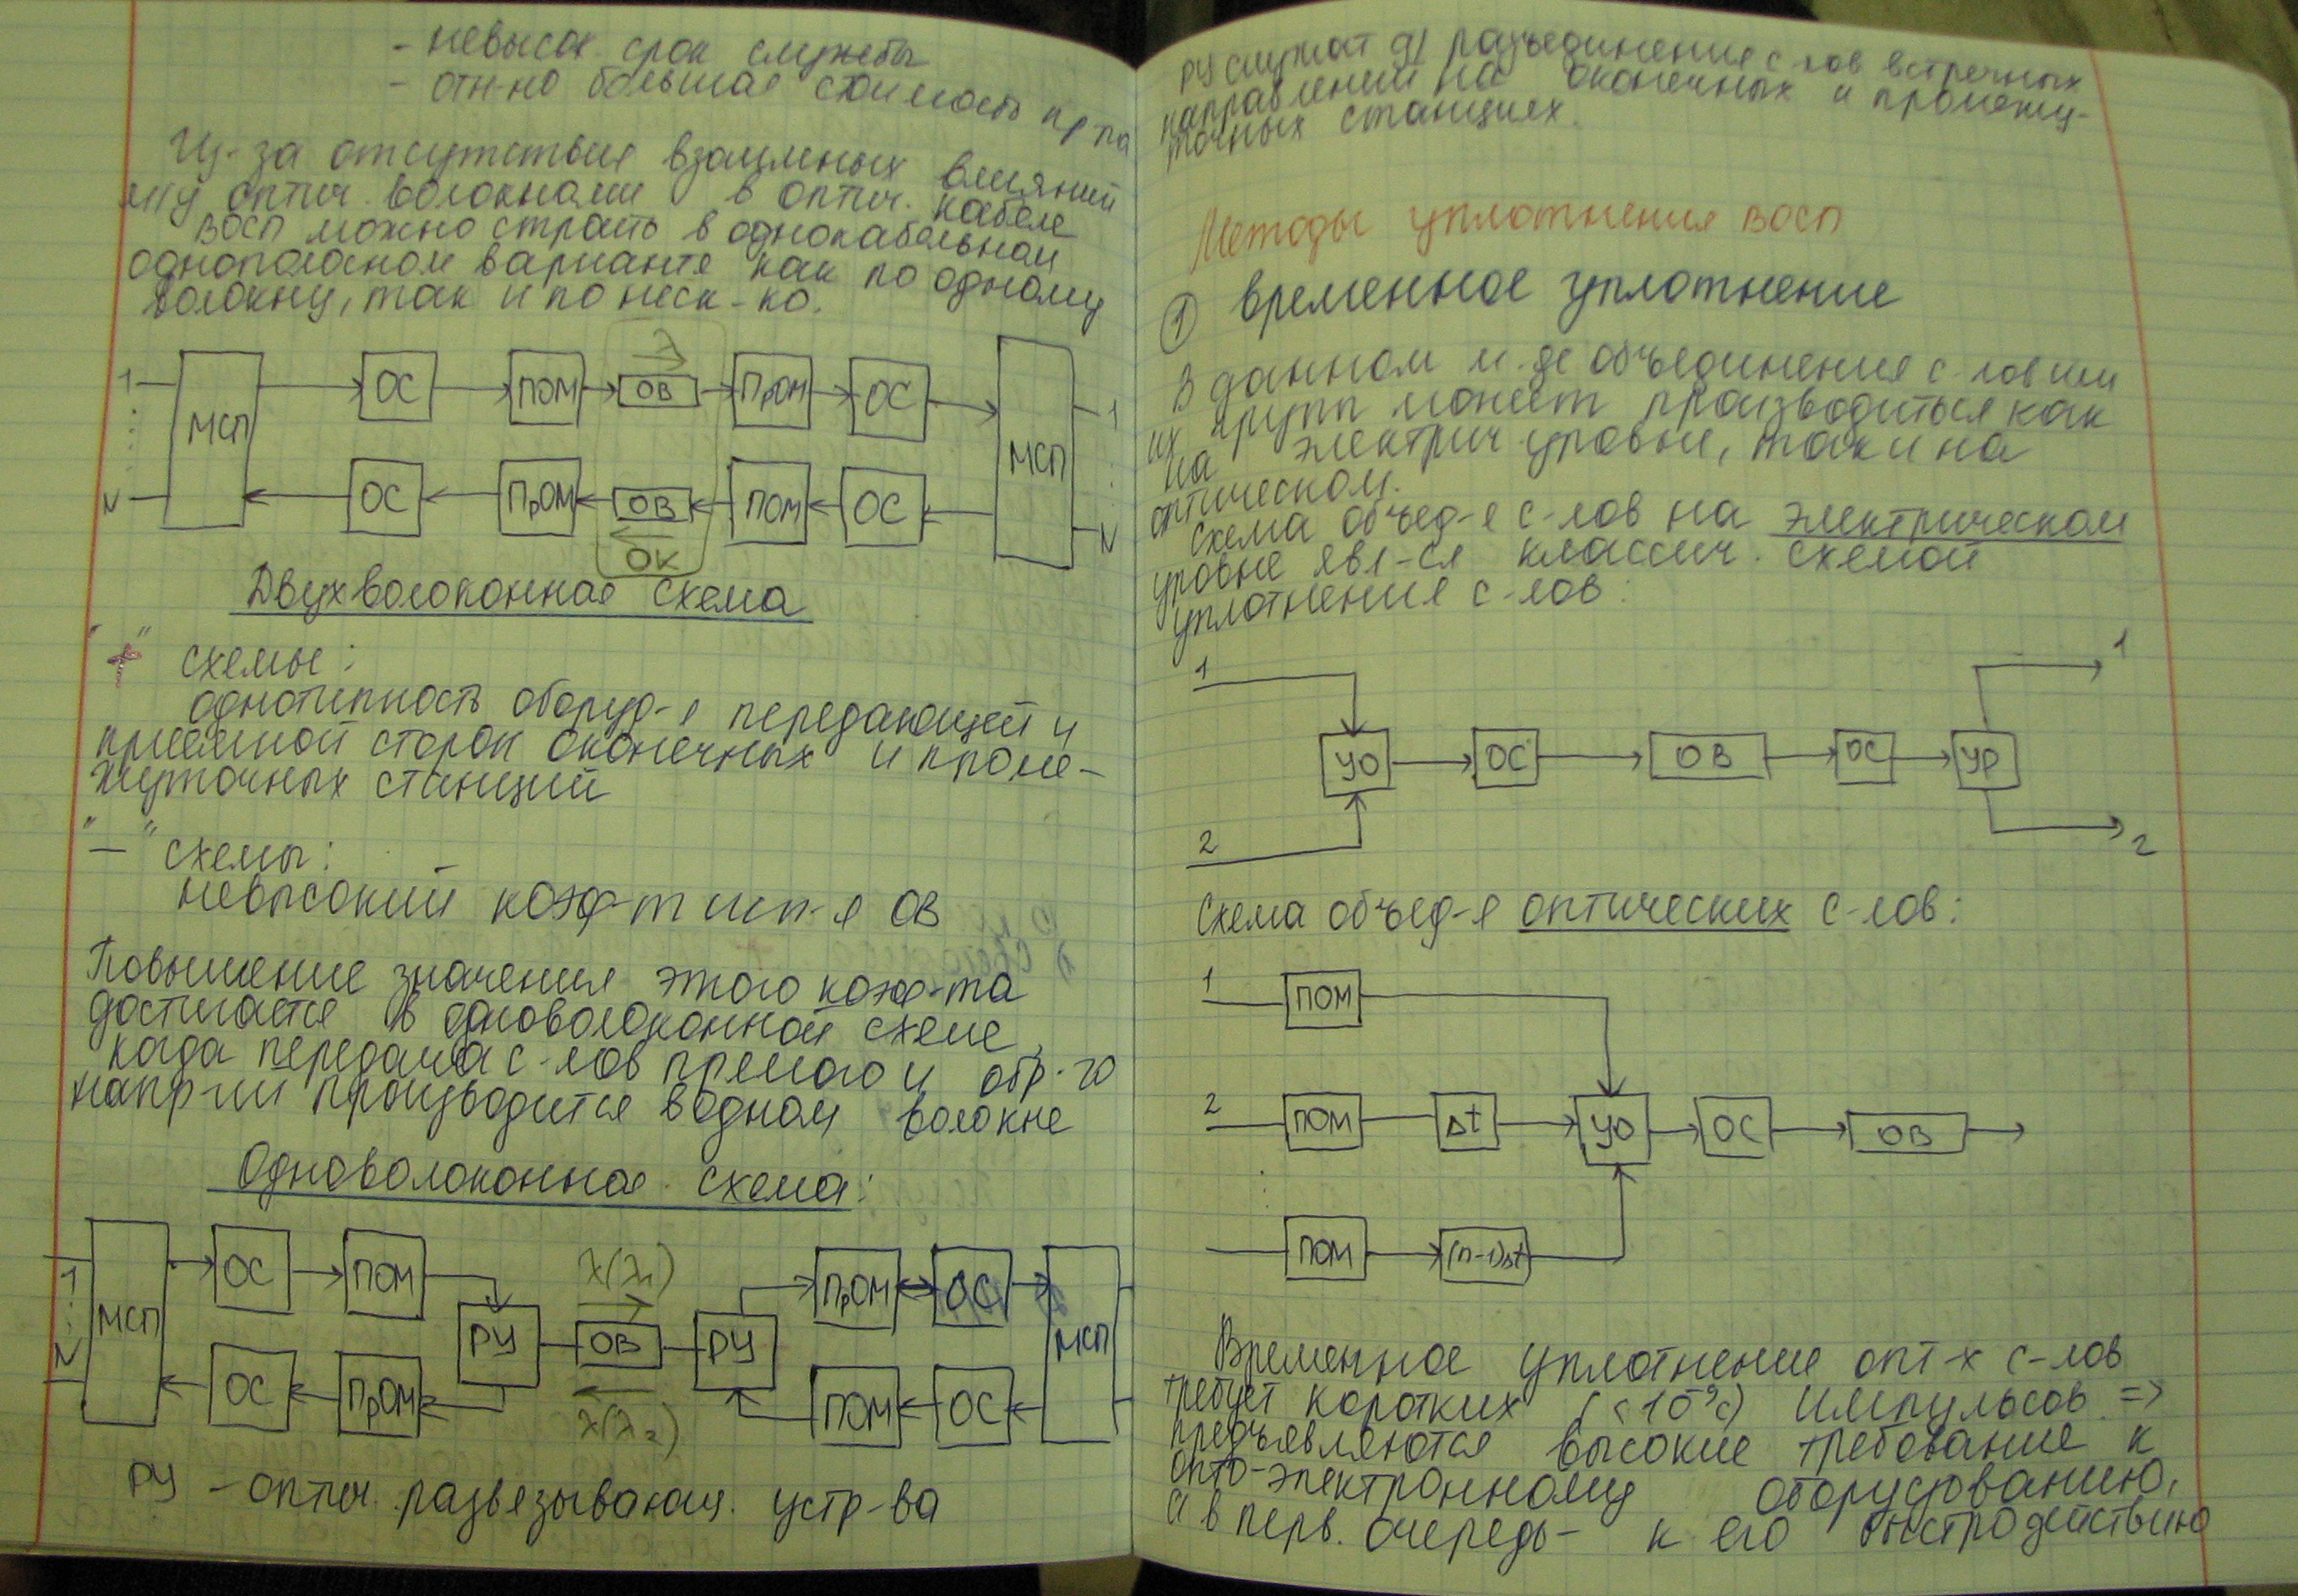 - невысок. срок службы
- отн-но большая стоимость пр-па
Из-за отсутствия взаимных влияний
м/у оптич. волокнами в оптич. кабеле
ВОСП можно строить в однокабельном
однополосном варианте как по одному
волокну, так и по неск-ко.
λ
1 МСП ОС ПОМ ОВ ПрОМ ОС МСП 1
N ОС ПрОМ ОВ ПОМ ОС N
ОК
Двухволоконная схема
"+" схемы:
однотипность оборуд-я передающей и
приемной сторон оконечных и проме-
жуточных станций
"—" схемы:
невысокий коэф-т исп-я ОВ
Повышение значения этого коэф-та
достигается в одноволоконной схеме,
когда передача с-лов прямого и обр-го
напр-ий производится в одном волокне
Одноволоконная схема:
1 МСП ОС ПОМ РУ λ(λ1) ОВ РУ ПрОМ ОС МСП
N ОС ПрОМ λ(λ2) ПОМ ОС
РУ - оптич. развязывающ. устр-ва
РУ служат д/ разъединение с-лов встречных
направлений на оконечных и промежу-
точных станциях.
Методы уплотнения ВОСП
① временное уплотнение
В данном м-де объединения с-лов или
их групп может производиться как
на электрич. уровне, так и на
оптическом.
Схема объед-я с-лов на электрическом
уровне явл-ся классич. схемой
уплотнения с-лов:
1 1
УО ОС ОВ ОС УР
2 2
Схема объед-я оптических с-лов:
1 ПОМ
2 ПОМ Δt УО ОС ОВ
ПОМ (n-1)Δt
Временное уплотнение опт-х с-лов
требует коротких (<10⁻⁹с) импульсов =>
предъявляются высокие требование к
опто-электронному оборудованию,
а в перв. очередь - к его быстродействию